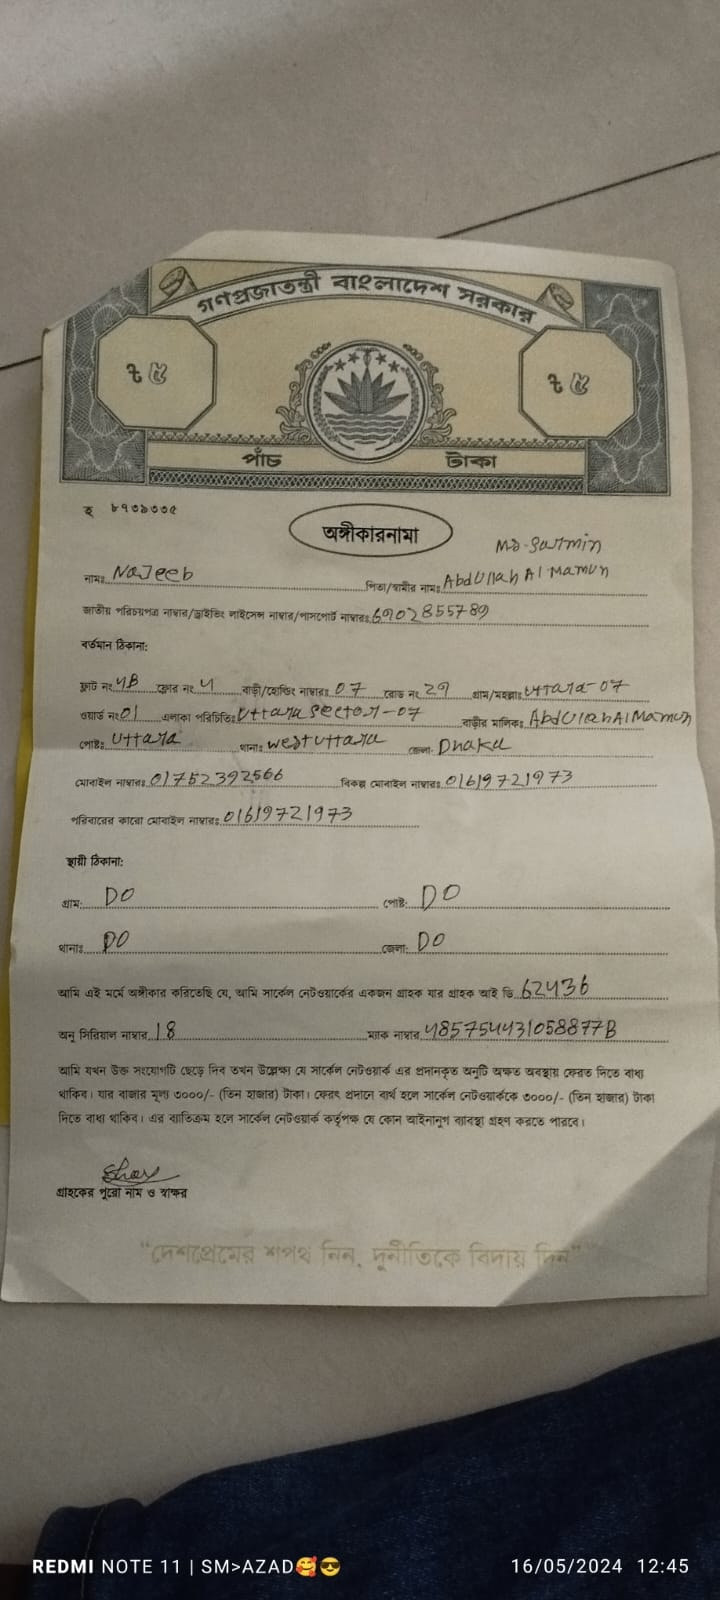 গণপ্রজাতন্ত্রী বাংলাদেশ সরকার
৳ ৫ ৳ ৫
পাঁচ টাকা
হ ৮৭৩৯৩৩৫
অঙ্গীকারনামা
Ms-Sarmin
নামঃ Najeeb পিতা/স্বামীর নামঃ Abdullah Al Mamun
জাতীয় পরিচয়পত্র নাম্বার/ড্রাইভিং লাইসেন্স নাম্বার/পাসপোর্ট নাম্বারঃ 6902855789
বর্তমান ঠিকানা:
ফ্লাট নং 4B ফ্লোর নং 4 বাড়ী/হোল্ডিং নাম্বারঃ 07 রোড নং 29 গ্রাম/মহল্লাঃ Uttara-07
ওয়ার্ড নং 01 এলাকা পরিচিতিঃ Uttara Sector-07 বাড়ীর মালিকঃ Abdullah Al Mamun
পোষ্টঃ Uttara থানাঃ West Uttara জেলা: Dhaka
মোবাইল নাম্বারঃ 01752392566 বিকল্প মোবাইল নাম্বারঃ 01619721973
পরিবারের কারো মোবাইল নাম্বারঃ 01619721973
স্থায়ী ঠিকানা:
গ্রাম: DO পোষ্ট: DO
থানাঃ DO জেলা: DO
আমি এই মর্মে অঙ্গীকার করিতেছি যে, আমি সার্কেল নেটওয়ার্কের একজন গ্রাহক যার গ্রাহক আই ডি 62436
অনু সিরিয়াল নাম্বার 18 ম্যাক নাম্বার 485754431058877B
আমি যখন উক্ত সংযোগটি ছেড়ে দিব তখন উল্লেক্ষ্য যে সার্কেল নেটওয়ার্ক এর প্রদানকৃত অনুটি অক্ষত অবস্থায় ফেরত দিতে বাধ্য
থাকিব। যার বাজার মূল্য ৩০০০/- (তিন হাজার) টাকা। ফেরৎ প্রদানে ব্যর্থ হলে সার্কেল নেটওয়ার্ককে ৩০০০/- (তিন হাজার) টাকা
দিতে বাধ্য থাকিব। এর ব্যাতিক্রম হলে সার্কেল নেটওয়ার্ক কর্তৃপক্ষ যে কোন আইনানুগ ব্যাবস্থা গ্রহণ করতে পারবে।
গ্রাহকের পুরো নাম ও স্বাক্ষর
"দেশপ্রেমের শপথ নিন, দুর্নীতিকে বিদায় দিন"
REDMI NOTE 11 | SM>AZAD🥰😎 16/05/2024 12:45